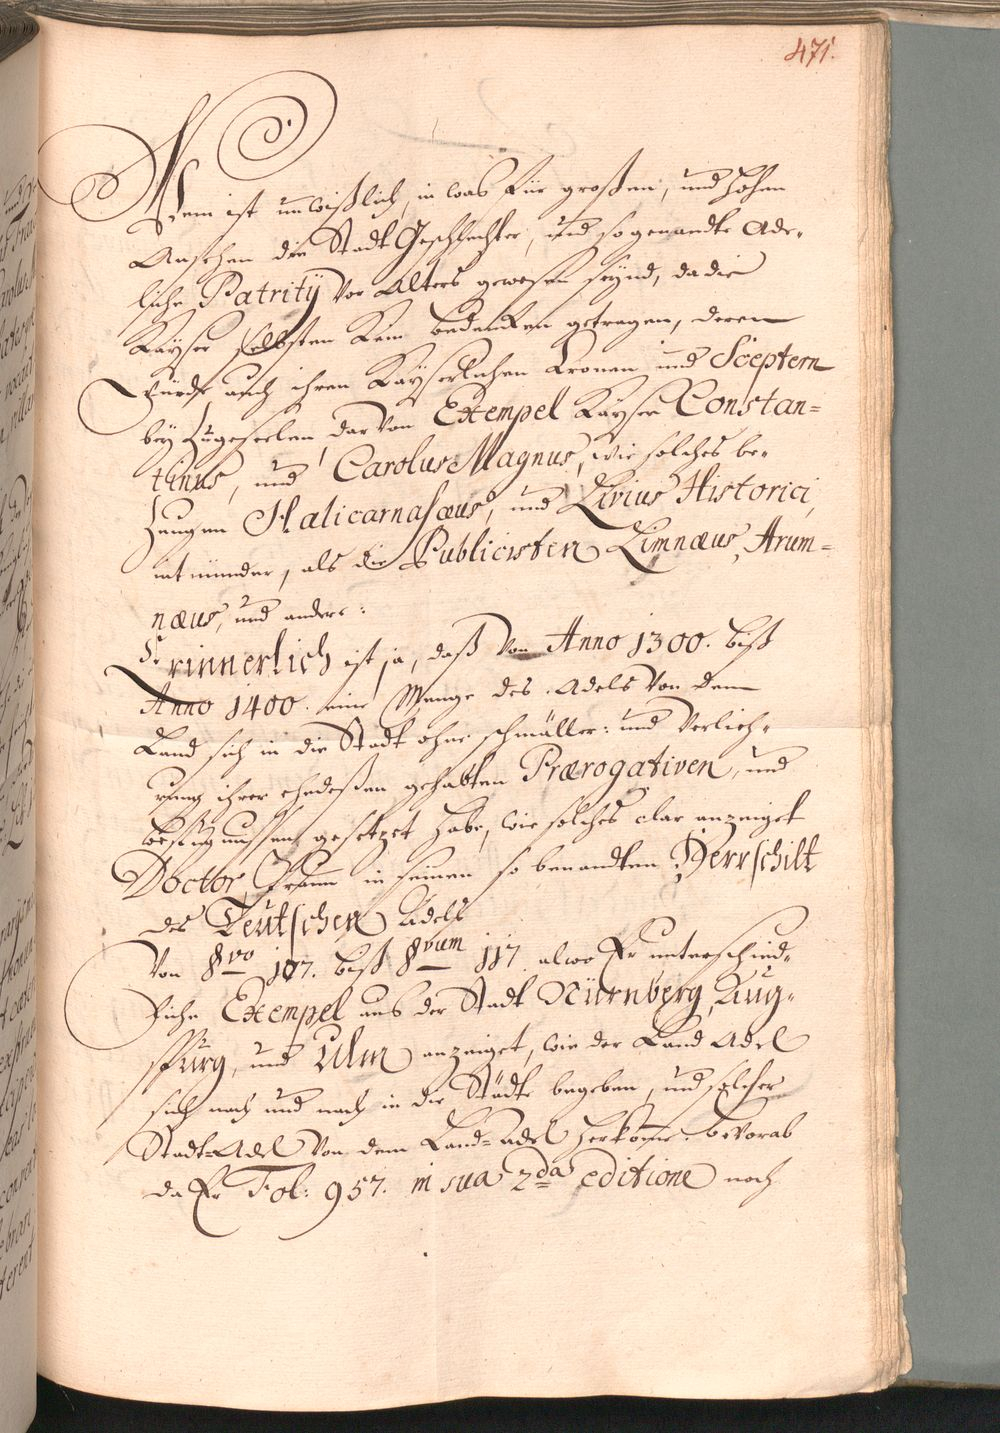 471.
Wem ist unwißlich, in was für großen, und hohen
Ansehen die Stadt Geschlechter, und so genandte Ade-
liche Patritÿ vor Alters gewesen seÿnd, da die
Kaÿser selbsten kein bedencken getragen, deren
Würde auch ihren Kaÿserlichen Cronen und Sceptern
beÿ zugesellen, dar von Exempel Kaÿser Constan=
tinus, und Carolus Magnus, wie solches be-
zeugen Halicarnasæus, und Livius Historici,
nit minder, als die Publicisten Limnæus, Arum=
næus, und andere:
Erinnerlich ist ja, daß von Anno 1300. biß
Anno 1400. eine Menge des Adels von dem
Land sich in die Stadt ohne schmäller: und verlieh-
rung ihrer ehedeßen gehabten Prærogativen, und
befugnussen gesetzet habe, wie solches clar anzeiget
Doctor in seinen so benandten Herrschilt
des Teutschen Adels
Von §vo 107. biß §vum 117. alwo Er unterschied-
liche Exempel aus der Stadt Nürnberg, Aug-
spurg, und Ulm anzeiget, wie der Land Adel
sich nach und nach in die Städte begeben, und solcher
Stadt=Adel von dem Land=Adel herkomme. bevorab
da Er Fol: 957. in sua 2da editione noch